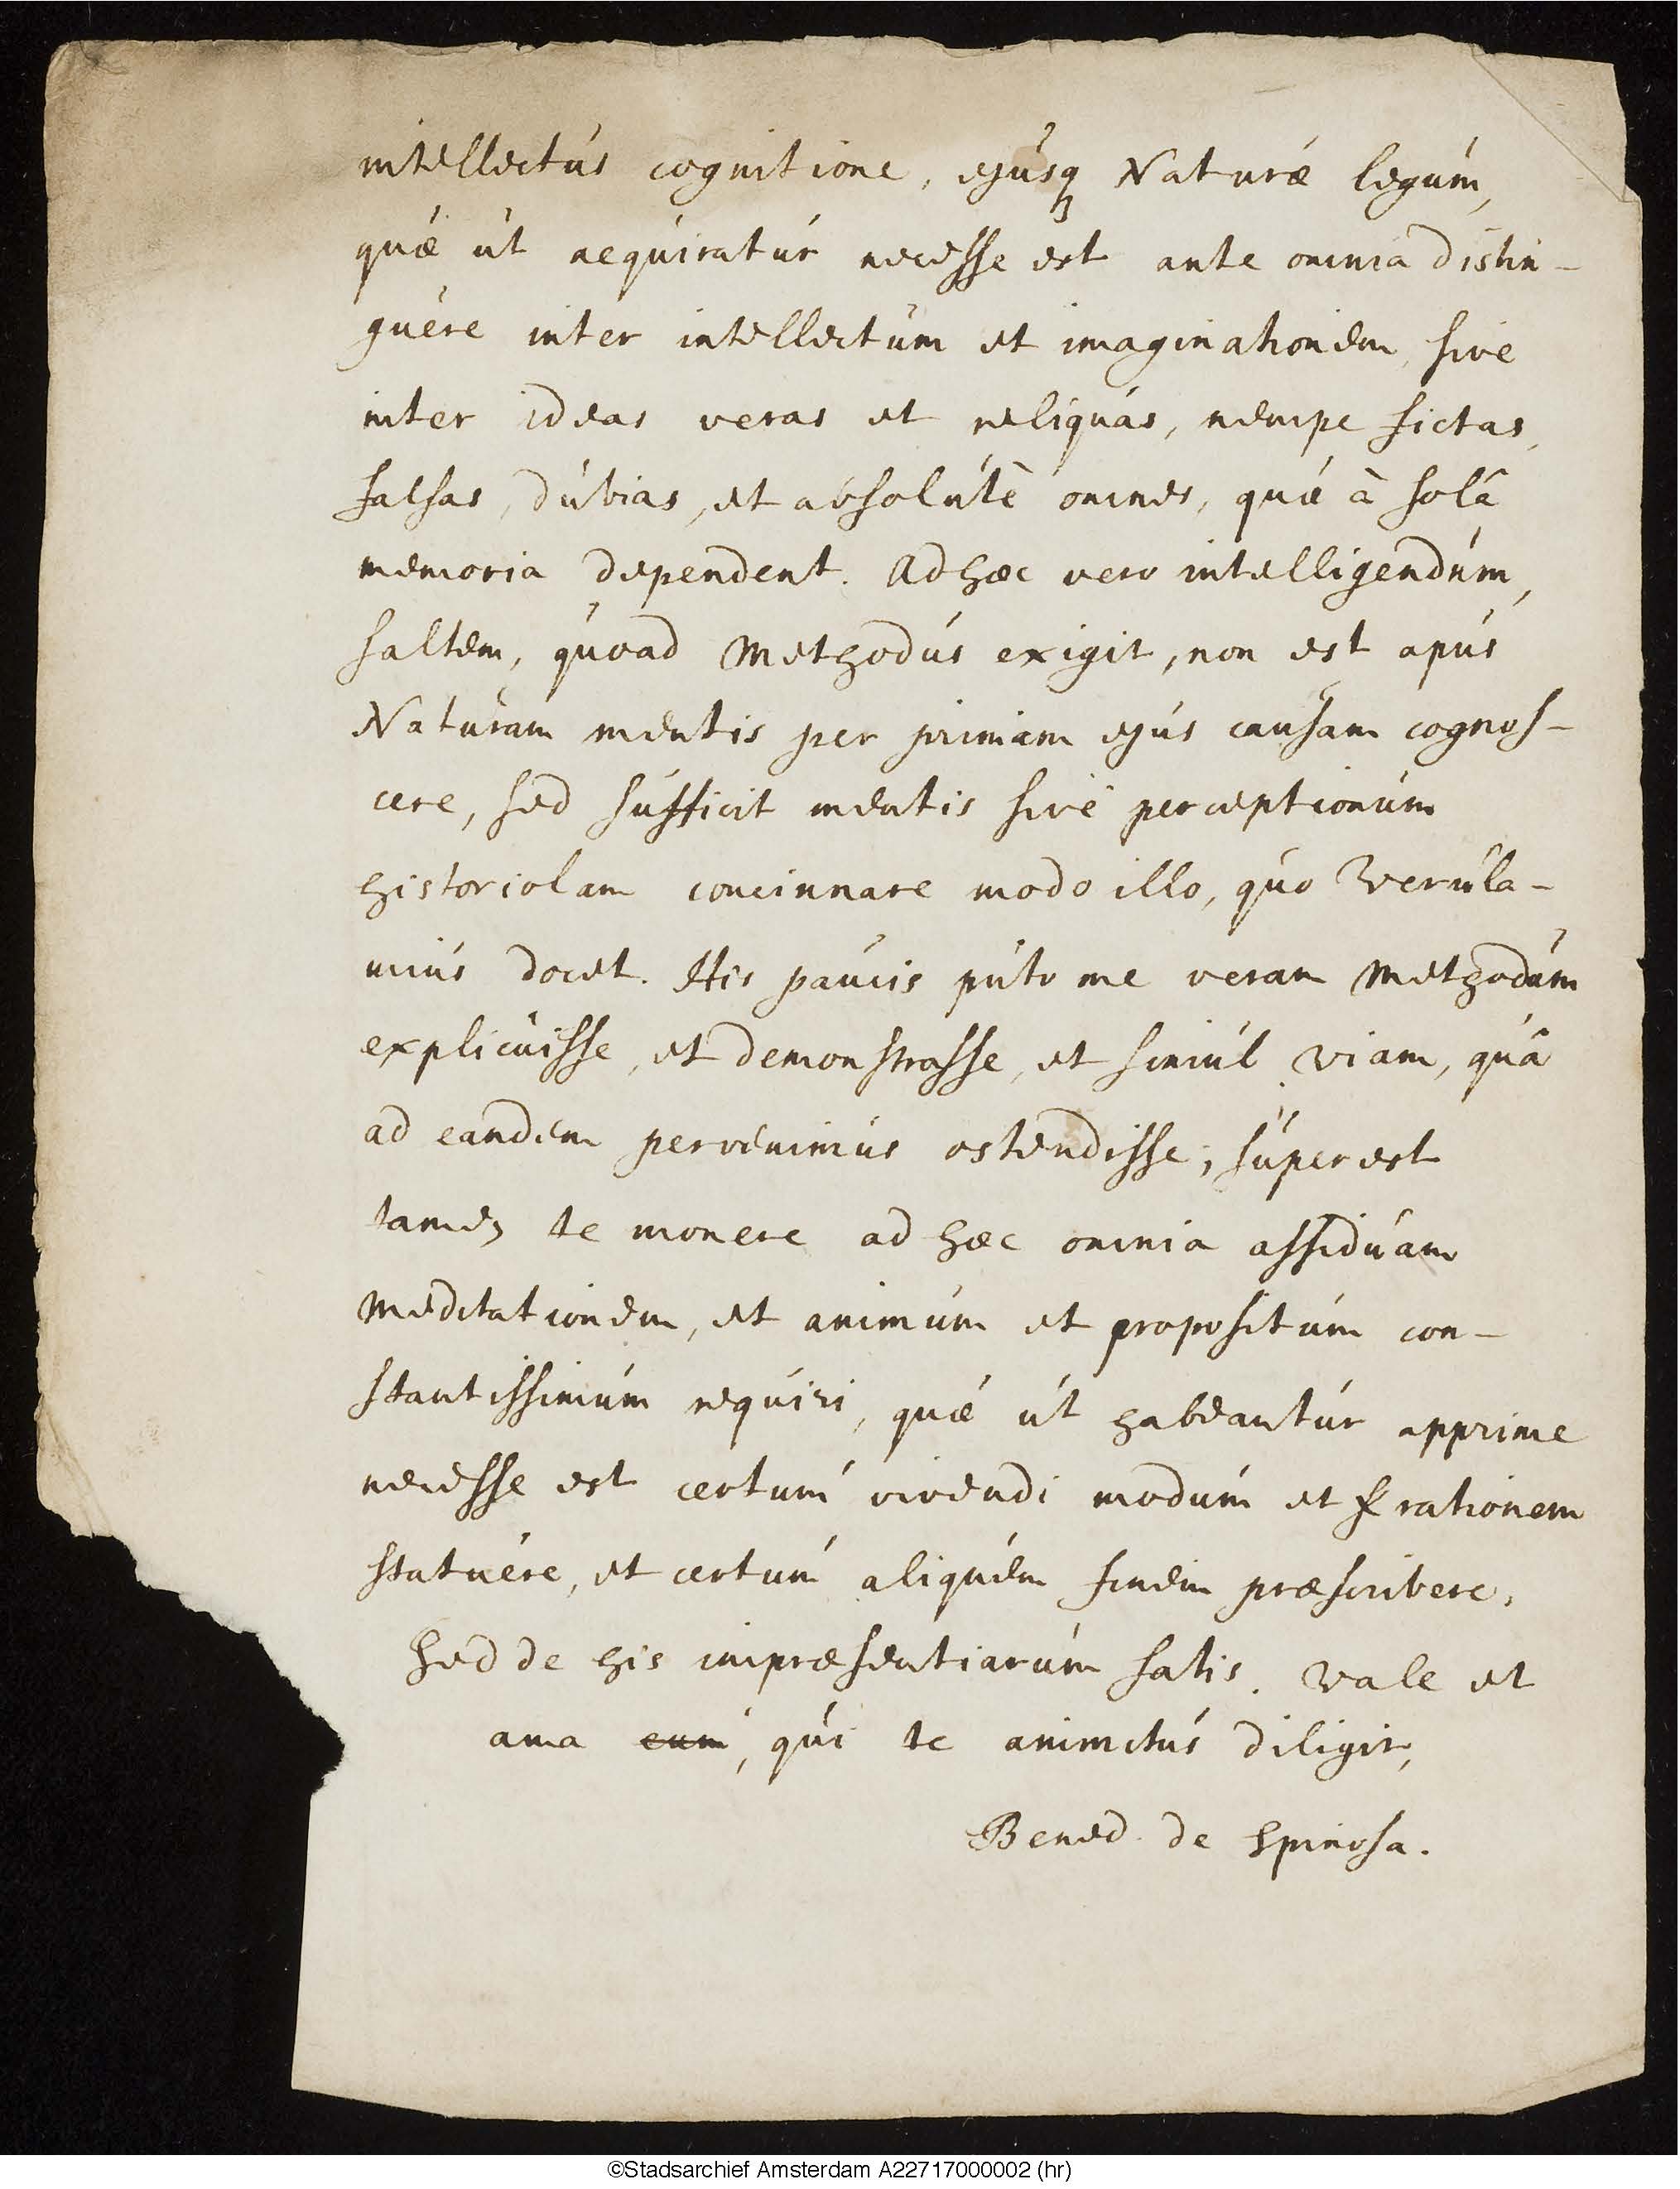 intellectús cognitione, ejúsq Natúræ legúm,
quæ út acquiratúr necesse est ante omnia distin-
guere inter intellectúm et imaginationem, sive
inter ideas veras et reliquas, nempe fictas,
falsas, dúbias, et absolútè omnes, quæ à solâ
memoria dependent. Ad hæc vero intelligendúm,
saltem, quoad Methodús exigit, non est apús
Natúram mentis per primam ejús caúsam cognos-
cere, sed súfficit mentis sive perceptionúm
historiolam concinnare modo illo, quo Verúla-
miús docet. His paúcis púto me veram Methodúm
explicúisse, et demonstrasse, et simúl viam, quâ
ad eandem pervenimús ostendisse; súperest
tamen te monere ad hæc omnia assidúam
meditationem, et animúm et propositúm con-
stantissimúm requiri, quæ út habeantúr apprime
necesse est certúm vivendi modúm et rationem
statúere, et certúm aliquem finem præscribere,
sed de his impræsentiarúm satis. Vale et
ama eum, qui te animitús diligit,
Bened. de Spinosa.
©Stadsarchief Amsterdam A22717000002 (hr)